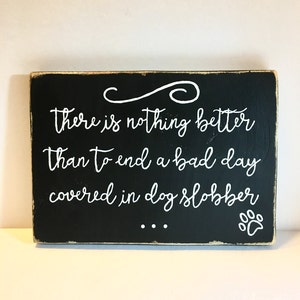 there is nothing better
than to end a bad day
covered in dog slobber
...